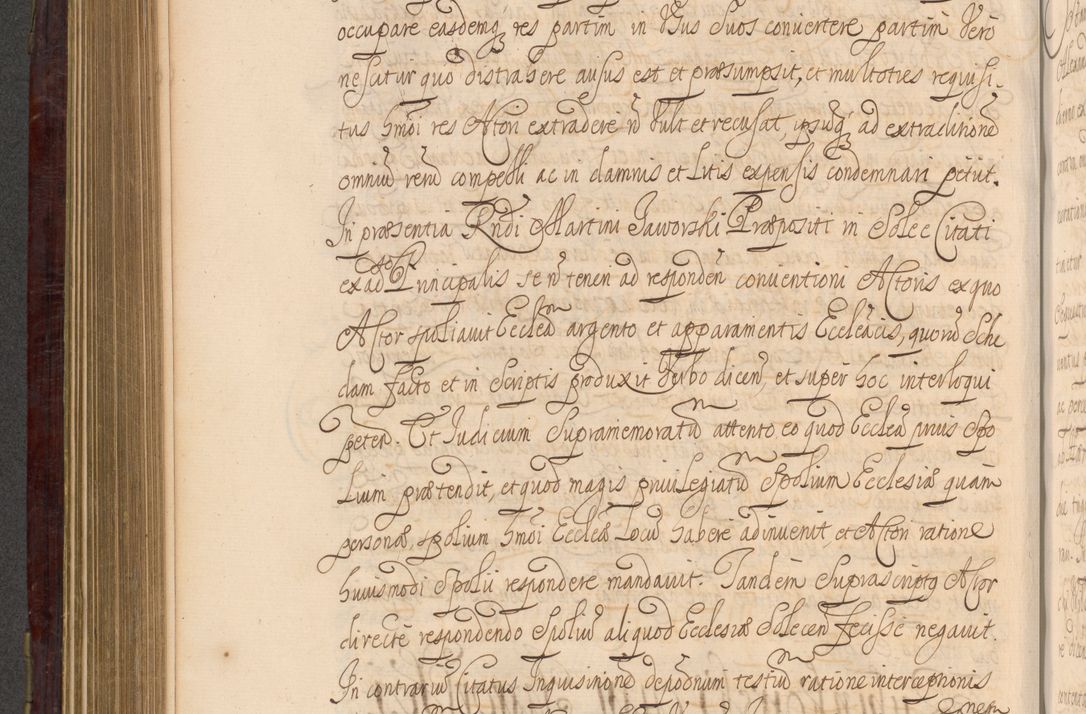 occupare easdemq₃ res partim in Usus suos convertere partim Vero
nescitur quo distrahere ausus est et præsumpsit, et multoties requisi-
tus hmōi res Actori extradere n̄ Vult et recusat, ipsuq₃ ad extraditionē
omniū rerū compelli ac in damnis et Litis expensis condemnari petiit.
In præsentia Rn̄di Martini Jaworski Præpositi in Solec Citati
ex ad Principalis se n̄ teneri ad responden̄ conventioni Actoris ex quo
Actor spoliavit Ecclēā argento et apparamentis Ecclēācis, quorū Sche
dam facto et in Scriptis produxit Verbo dicen̄ et super hoc interloqui
peten̄. Et Judicium Supramemoratū attento eo quod Ecclēā prius Spo
lium prætendit, et quod magis privilegiatū Spolium Ecclesiæ quam
personæ, spolium hmōi Ecclēæ Locū habere adinvenit, et Actori ratione
huiusmodi Spolii respondere mandavit. Tandem Suprascriptq Actor
directe respondendo Spoliū aliquod Ecclesiæ Solecen̄ fecisse negavit.
In contrariū Citatus Inquisitionē testiū ratione interceptionis